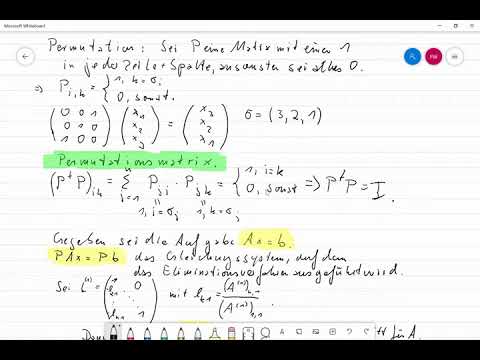 Microsoft Whiteboard
Permutation: Sei P eine Matrix mit einer 1
in jeder Zeile + Spalte, ansonsten sei alles 0.
⇒ P_{i,k} = { 1, k=σ_i
0, sonst.
( 0 0 1 ) ( x_1 ) = ( x_3 ) σ = (3,2,1)
( 0 0 0 ) ( x_2 ) ( x_2 )
( 1 0 0 ) ( x_3 ) ( x_1 )
Permutationsmatrix.
(P^t P)_{ik} = Σ_{j=1}^n P_{ji} · P_{jk} = { 1, i=k
0, sonst ⇒ P^t P = I.
1, i=σ_j 1, k=σ_j
Gegeben sei die Aufgabe Ax=b.
PAx = Pb das Gleichungssystem, auf dem
das Eliminationsverfahren ausgeführt wird.
Sei L^{(1)} = ( 1 0
l_{21} ⋱
⋮
l_{n1} 1 ) mit l_{k1} = (A^{(1)})_{k,1} / (A^{(1)})_{1,1}
für A.